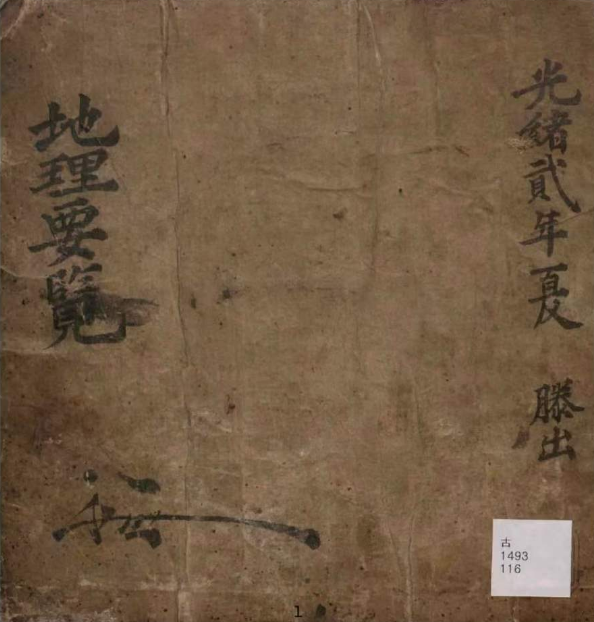 光緒貳年夏 滕出
地理要覧
古
1493
116
1